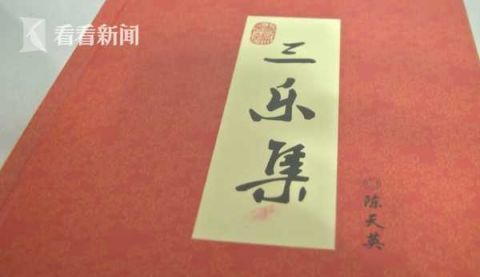 看看新闻
三乐集
陈天英